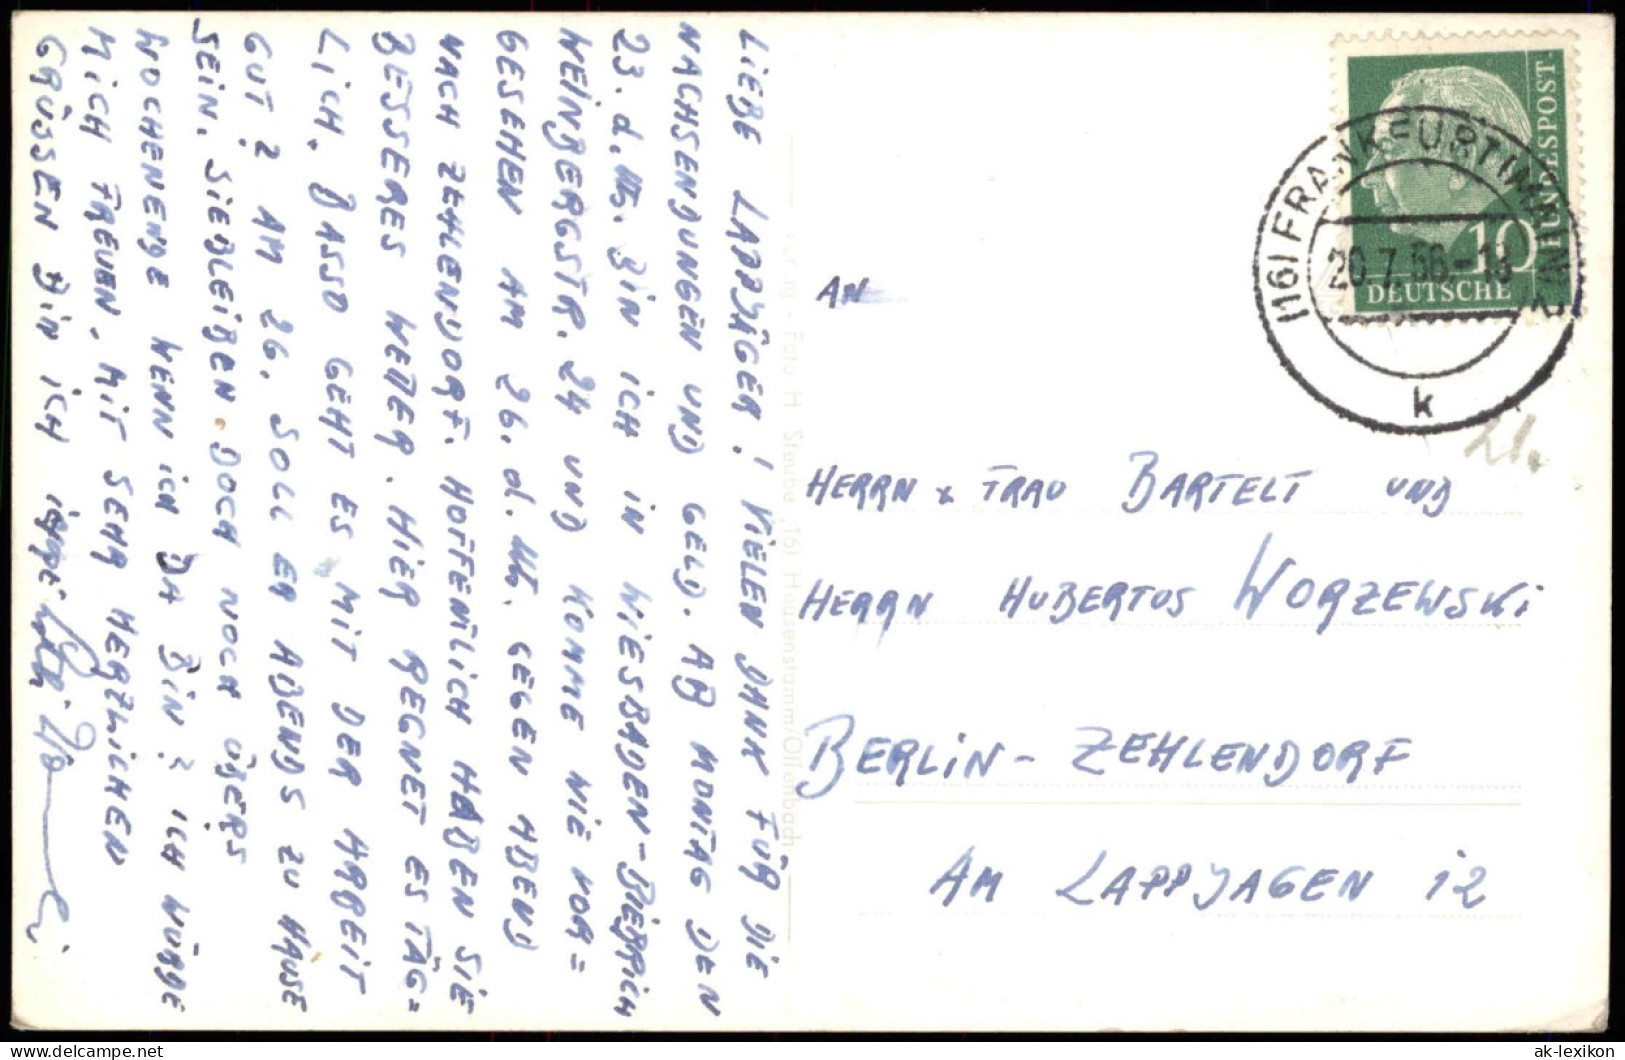 LIEBE LAPPJÄGER! VIELEN DANK FÜR DIE
NACHSENDUNGEN UND GELD. AB MONTAG DEN
23. d. Mts. BIN ICH IN WIESBADEN-BIEBRICH
WEINBERGSTR. 24 UND KOMME WIE VOR=
GESEHEN AM 26. d. Mts. GEGEN ABEND
NACH ZEHLENDORF. HOFFENTLICH HABEN SIE
BESSERES WETTER. HIER REGNET ES TÄG=
LICH. BASSO GEHT ES MIT DER ARBEIT
GUT? AM 26. SOLL ER ABENDS ZU HAUSE
SEIN. SIE BLEIBEN DOCH NOCH ÜBERS
WOCHENENDE WENN ICH DA BIN? ICH WÜRDE
MICH FREUEN. MIT SEHR HERZLICHEN
GRÜSSEN BIN ICH IHRE
Foto H. Steube (16) Hausenstamm/Offenbach
DEUTSCHE BUNDESPOST
10
(16) FRANKFURT (MAIN) 2
20.7.56.-19
k
21.
AN
HERRN x FRAU BARTELT UND
HERRN HUBERTUS WORZEWSKI
BERLIN - ZEHLENDORF
AM LAPPJAGEN 12
ak-lexikon
delcampe.net